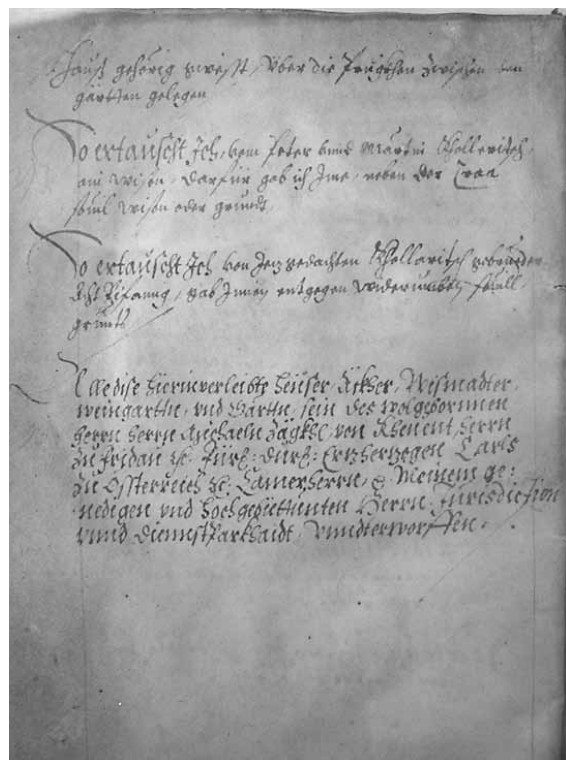 Hauß gehörig zwischt, Vber die Prugkhen zwischen den
gärtten gelegen
So ertauscht Ich, vom Peter vnnd Martin Khollaritsch,
ain Wisen, darfür gab ich Ime, neben der Traa
souil Wisen oder grundt,
So ertauscht Ich von Jezgedachten Khollaritsch gebrueder
Acht Pifanng, gab Innen entgegen widerumben souill
grundts
Alle dise hierinverleibte heüser Äkher, Wismadter,
weingartten, vnd Gärttn, sein des wolgebornnen
herrn herrn Michaeln Zägkhl, von Khevent, herrn
zu fridau etc. Fürst: durch: Erzherzogen Carls
zu Össterreich etc. Camerherrn, etc Meinem ge:
nedigen vnd hochgepiettunten Herrn, Jurisdiction
vnnd Diennstparkhaidt, vnndterworffen.